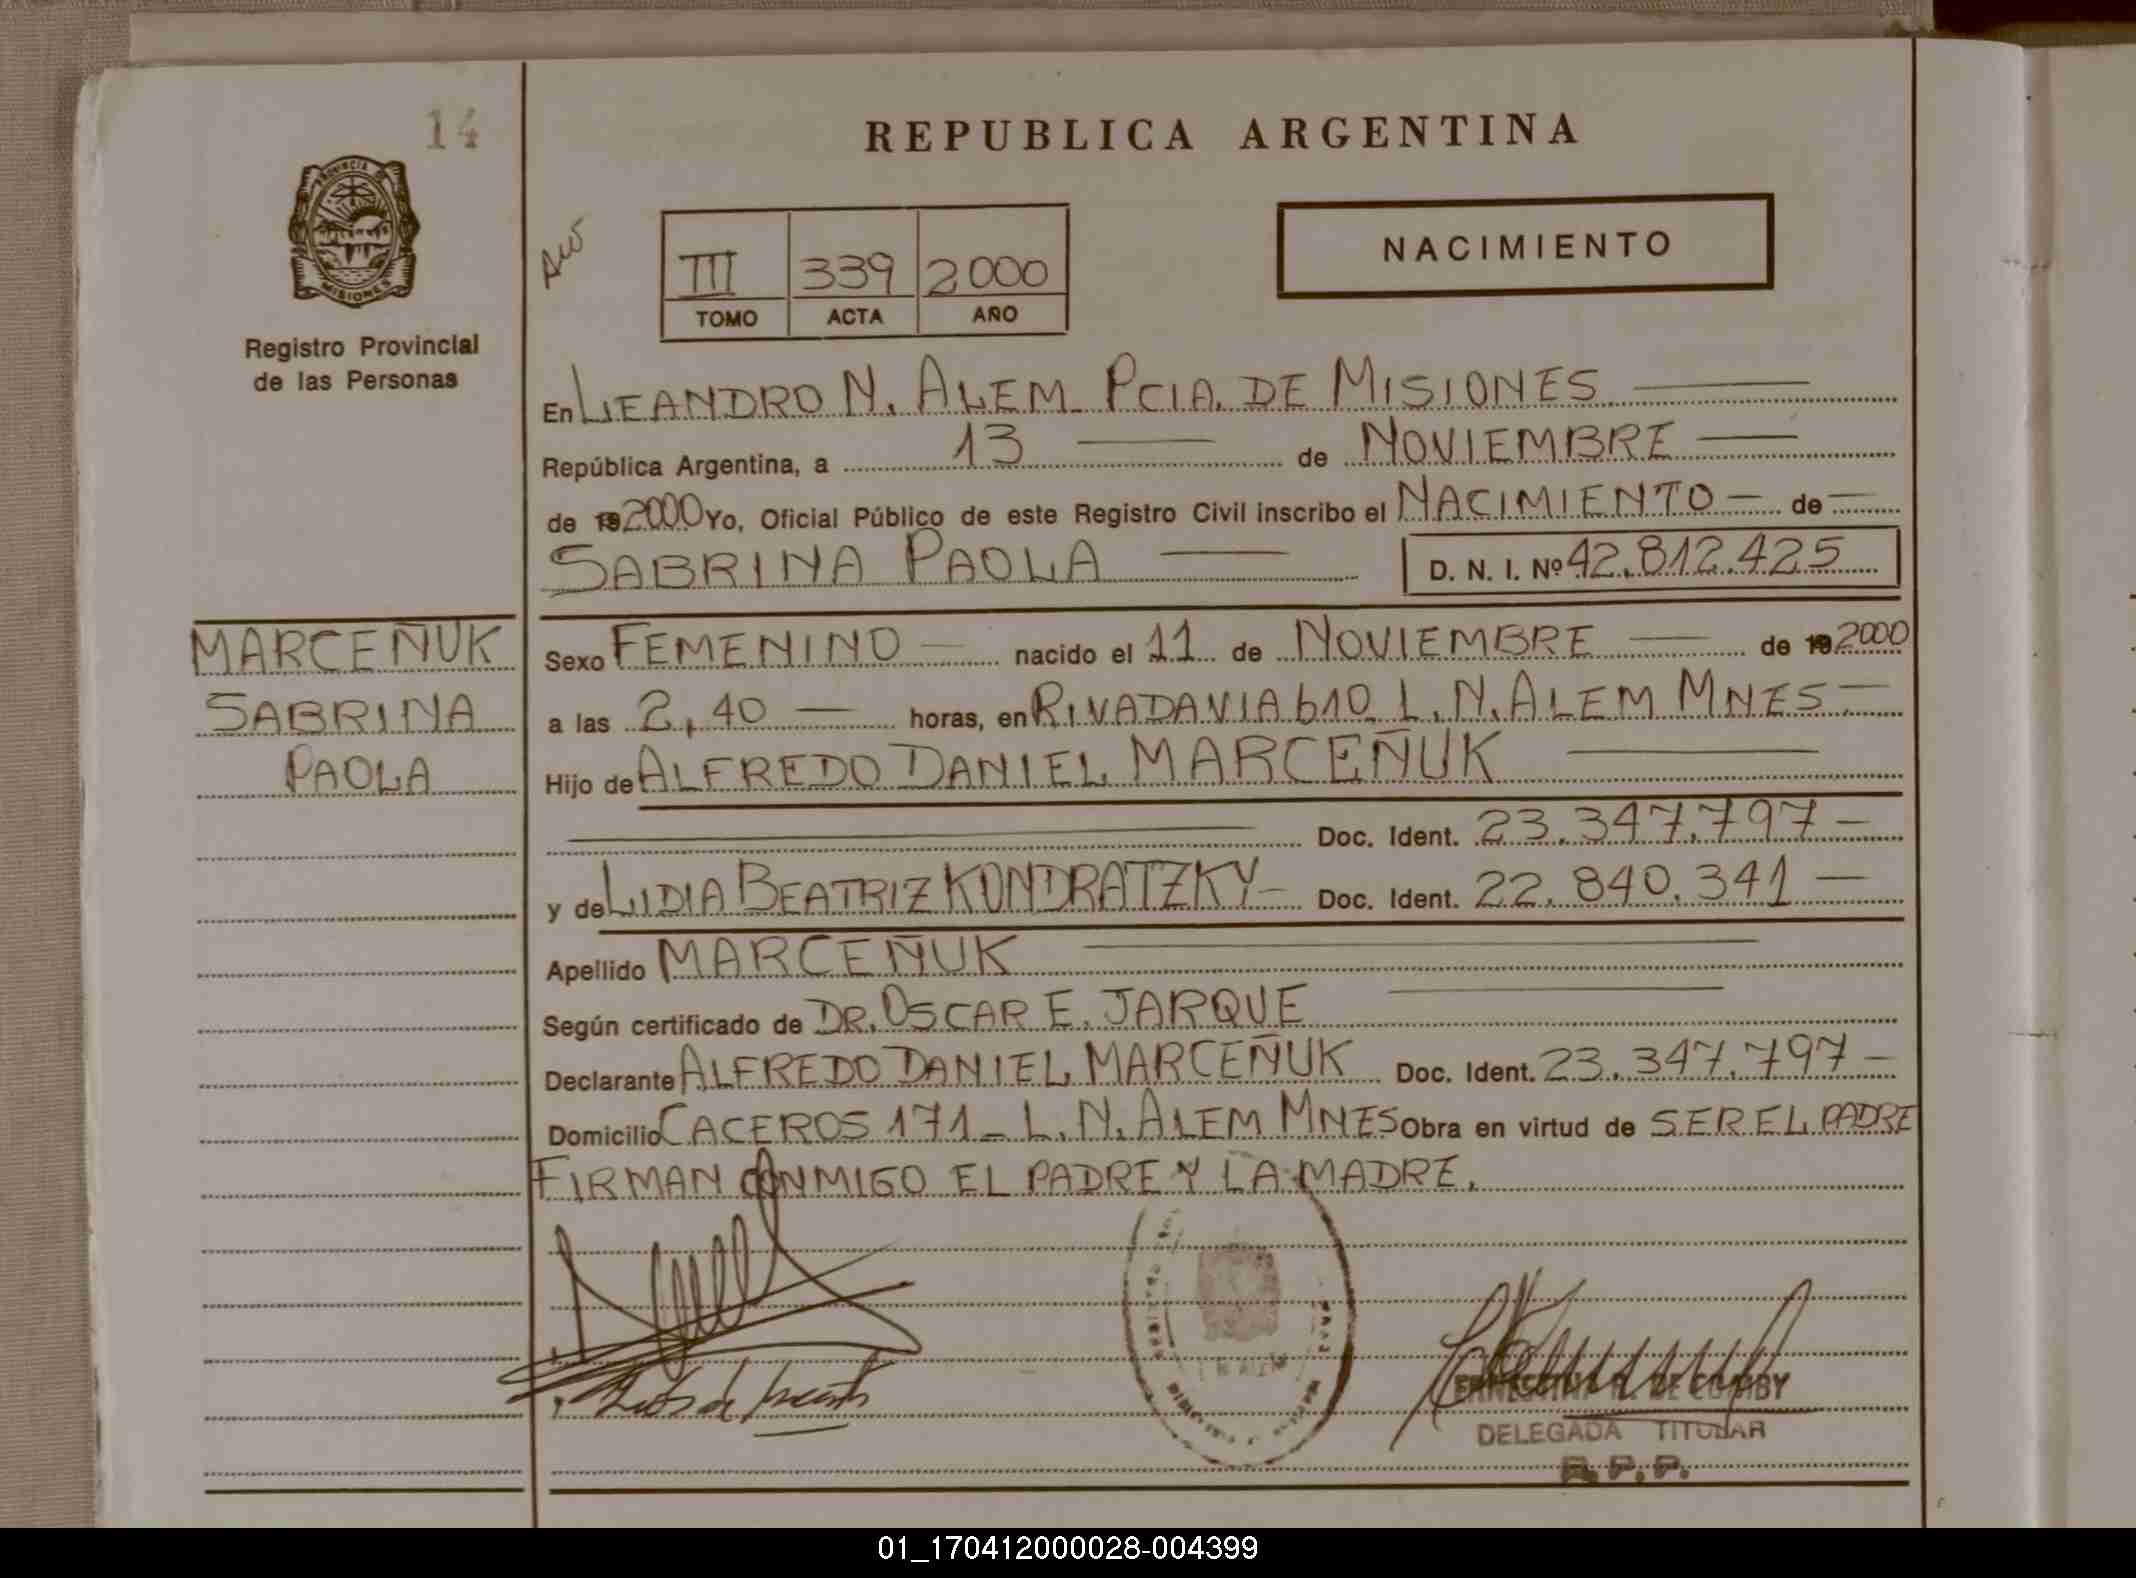 14
PROVINCIA DE
MISIONES
Registro Provincial
de las Personas
MARCEÑUK
SABRINA
PAOLA
REPUBLICA ARGENTINA
III 339 2000
TOMO ACTA AÑO
NACIMIENTO
En LEANDRO N. ALEM PCIA. DE MISIONES
República Argentina, a 13 de NOVIEMBRE
de 192000 Yo, Oficial Público de este Registro Civil inscribo el NACIMIENTO de
SABRINA PAOLA D. N. I. Nº 42.812.425
Sexo FEMENINO nacido el 11 de NOVIEMBRE de 192000
a las 2,40 horas, en RIVADAVIA 610 L.N. ALEM MNES
Hijo de ALFREDO DANIEL MARCEÑUK
Doc. Ident. 23.347.797
y de LIDIA BEATRIZ KONDRATZKY Doc. Ident. 22.840.341
Apellido MARCEÑUK
Según certificado de DR. OSCAR E. JARQUE
Declarante ALFREDO DANIEL MARCEÑUK Doc. Ident. 23.347.797
Domicilio CACEROS 171 - L.N. ALEM MNES Obra en virtud de SER EL PADRE
FIRMAN CONMIGO EL PADRE Y LA MADRE.
DELEGADA TITULAR
R.P.P.
01_170412000028-004399